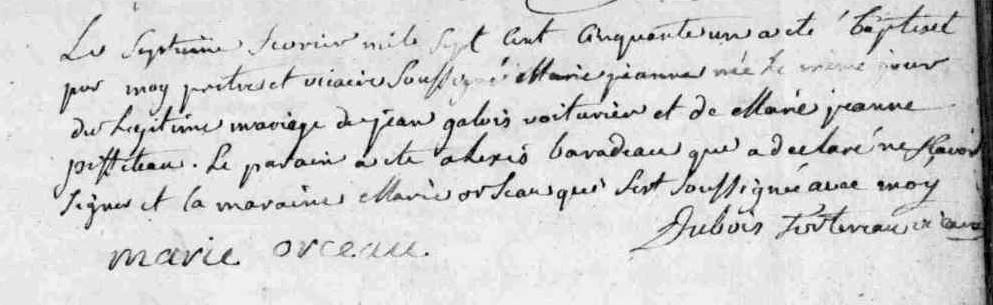 Le septieme fevrier mile sept cent cinquante un a eté baptisée
par moy pretre et vicaire soussigné Marie jeanne née le même jour
du legitime mariage de jean galois voiturier et de Marie jeanne
. Le parain a eté alexis baradeau qui a declaré ne sçavoir
signer et la maraine Marie orseau qui s'est soussignée avec moy
Dubois vicaire
marie orceau.